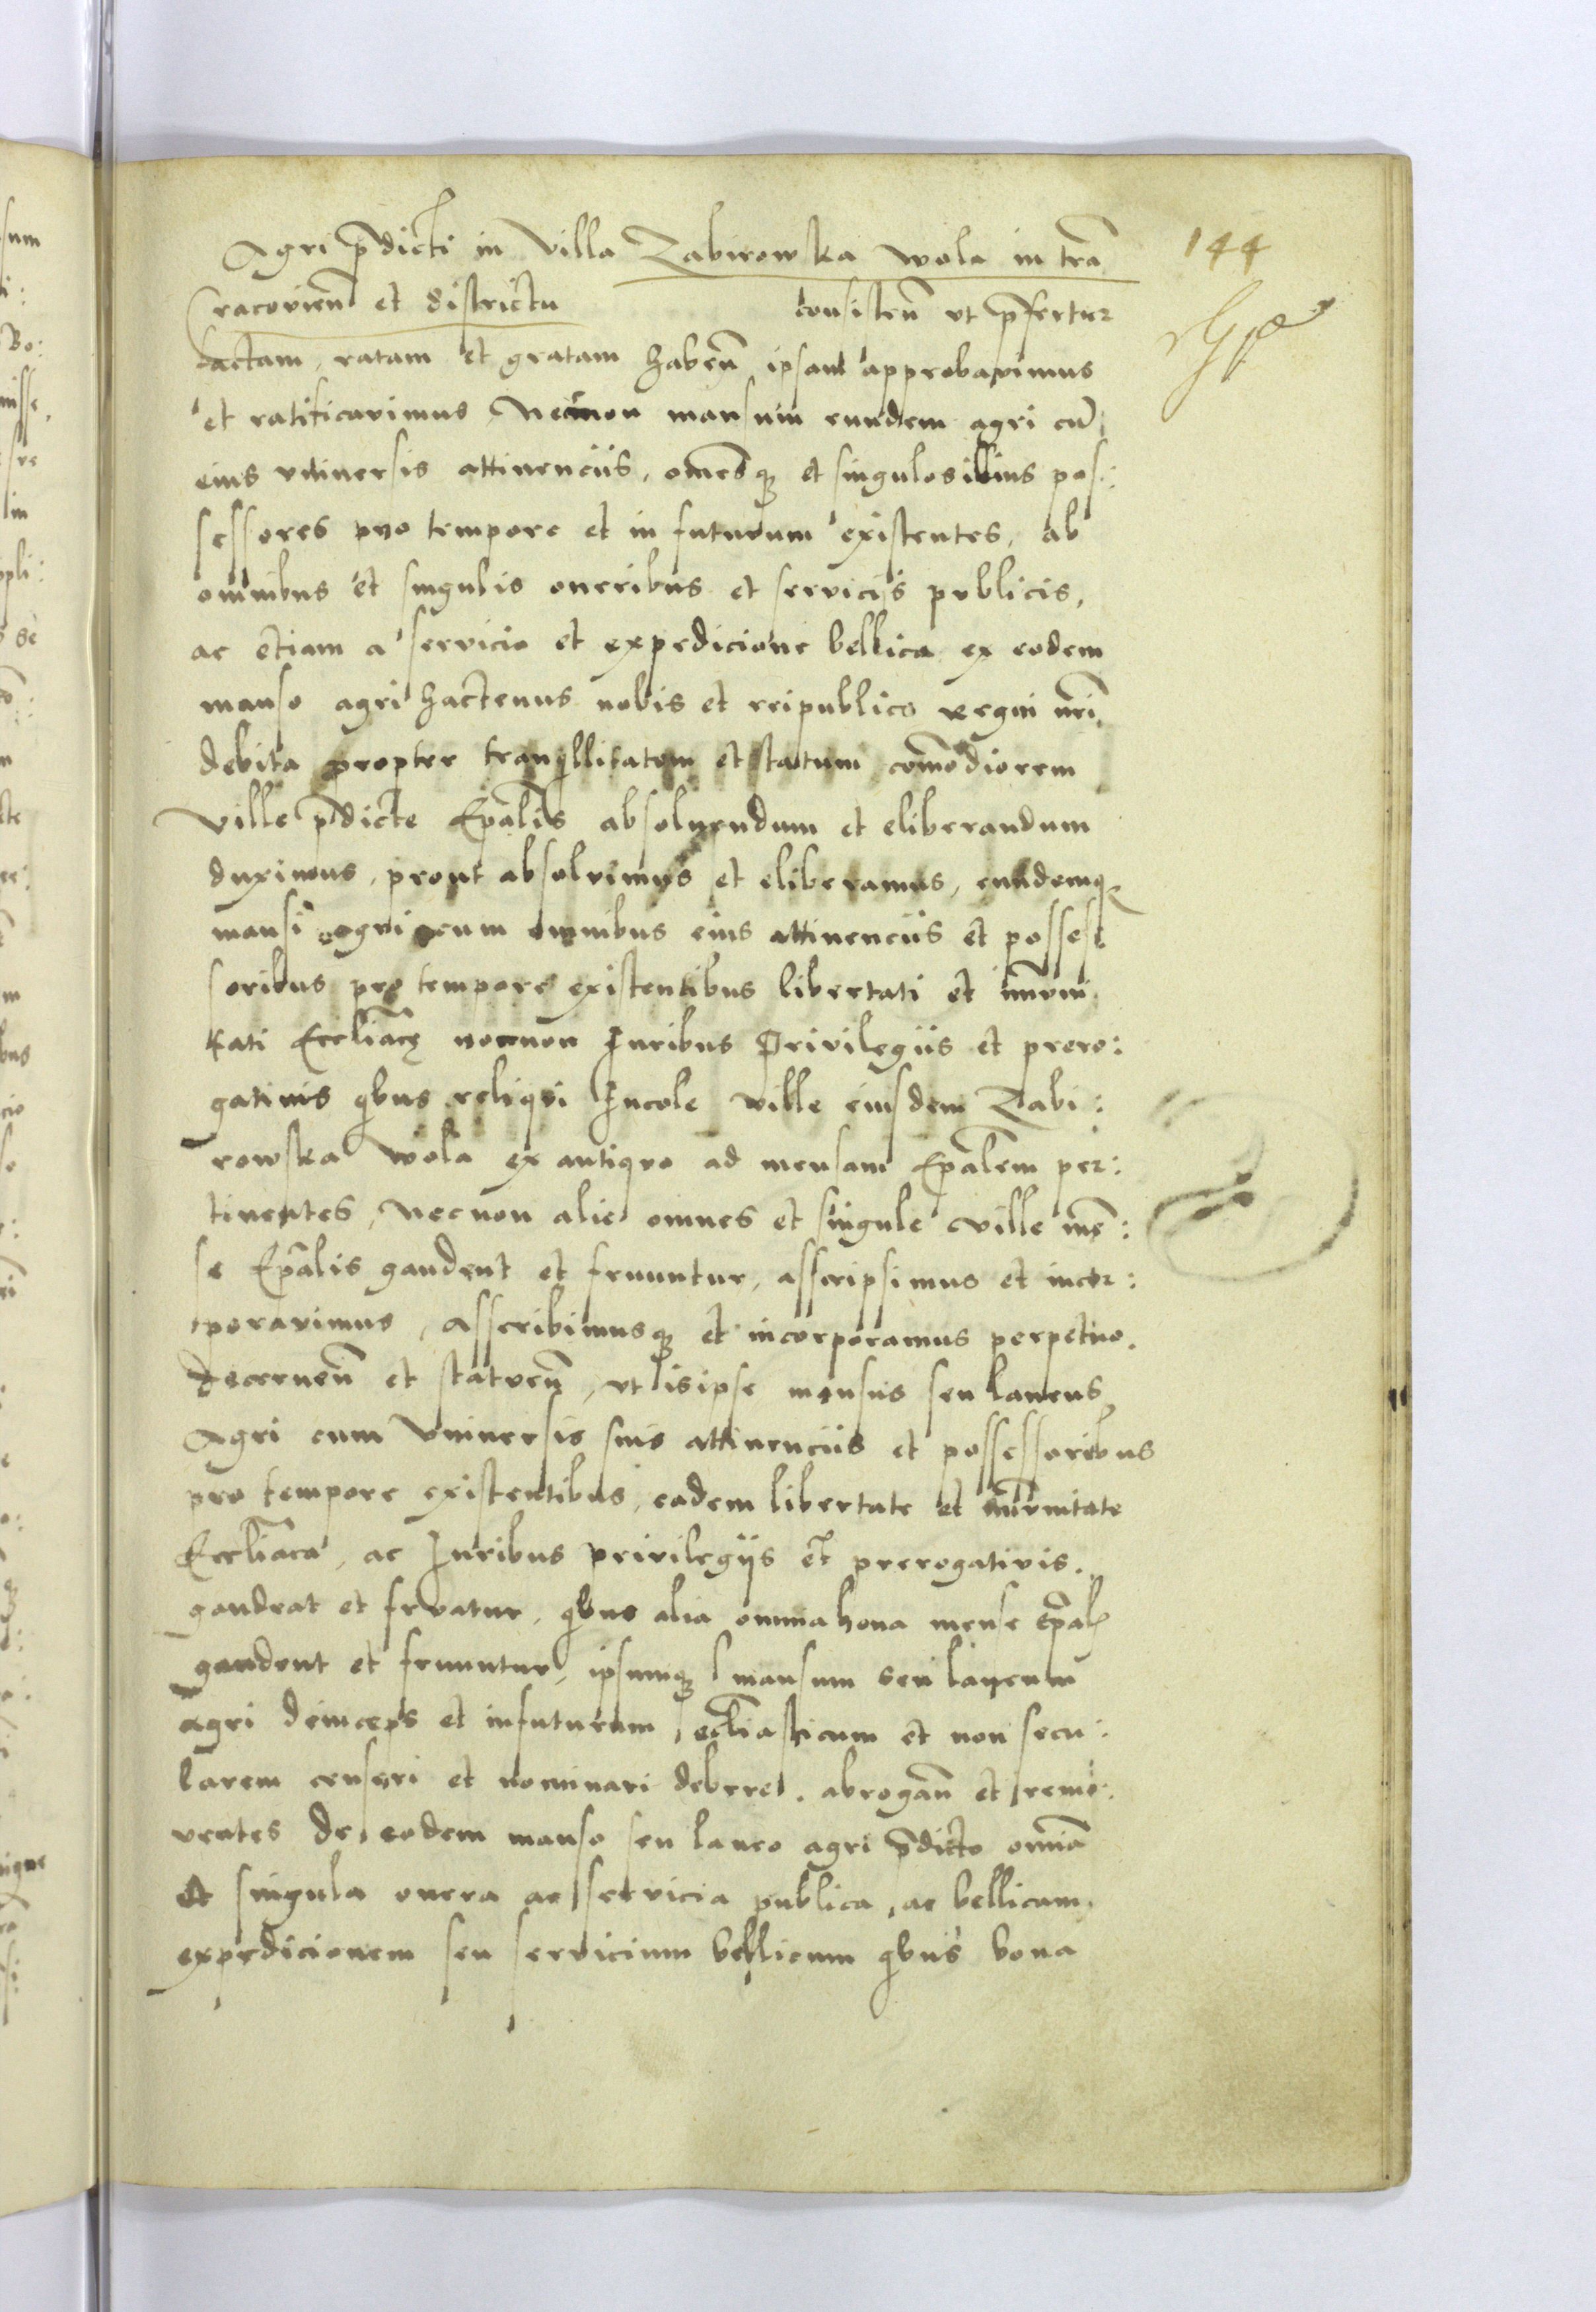 144
Agri p̄dicti in Villa Zabirowska wola in tr̄a
Cracovien̄ et districtu consisten̄ vt p̄fertur
factam, ratam et gratam haben̄ ipsam approbavimus
et ratificavimus, Necnon mansum eundem agri cū
eius vniversis attinenciis, om̄esq; et singulos illius pos:
sessores pro tempore et in futurum existentes, ab
omnibus et singulis oneribus et serviciis publicis,
ac etiam a servicio et expedicione bellica ex eodem
manso agri hactenus nobis et reipublice regni nr̄i
debita propter tranqllitatem et statum com̄odiorem
Ville p̄dicte Ep̄alis absoluendum et eliberandum
duximus, prout absolvimus et eliberamus, eundemq;
mansū agri cum omnibus eius attinenciis et posses
soribus pro tempore existentibus libertati et im̄uni
tati Eccl̄iacę necnon Iuribus Privilegiis et prero:
gativis qbus reliqvi Incole ville eiusdem Zabi:
rowska wola ex antiqvo ad mensam Ep̄alem per:
tinentes, Necnon alie omnes et singule ville mē:
se Ep̄alis gaudent et fruuntur, asscripsimus et incor:
poravimus, Asscribimusq; et incorporamus perpetuo.
decernen̄ et statuen̄, vt is ipse mansus seu laneus
Agri cum Vniversis suis attinenciis et possessoribus
pro tempore existentibus, eadem libertate et im̄unitate
Eccl̄iaca, ac Iuribus privilegijs et prerogativis.
gaudeat et fruatur, qbus alia omnia bona mense Ep̄al
gaudent et fruuntur, ipsumq; mansum seu laneum
agri deinceps et in futurum, eccl̄iasticum et non secu:
larem censeri et nominari debere. abrogan̄ et remo:
ventes de eodem manso seu laneo agri p̄dicto omīa
et singula onera ac servicia publica, ac bellicam
expedicionem seu servicium bellicum qbus bona